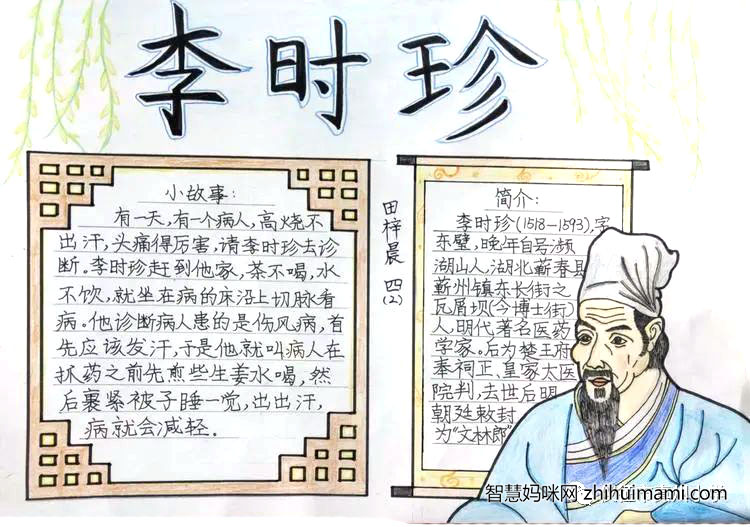 李时珍
小故事:
有一天,有一个病人,高烧不
出汗,头痛得厉害,请李时珍去诊
断。李时珍赶到他家,茶不喝,水
不饮,就坐在病的床沿上切脉看
病。他诊断病人患的是伤风病,首
先应该发汗,于是他就叫病人在
抓药之前先煎些生姜水喝,然
后裹紧被子睡一觉,出出汗,
病就会减轻.
田梓晨 四(2)
简介:
李时珍(1518-1593),字
东璧,晚年自号濒
湖山人,湖北蕲春县
蕲州镇东长街之
瓦屑坝(今博士街)
人,明代著名医药
学家。后为楚王府
奉祠正、皇家太医
院判,去世后明
朝廷敕封
为“文林郎”
智慧妈咪网 zhihuimami.com